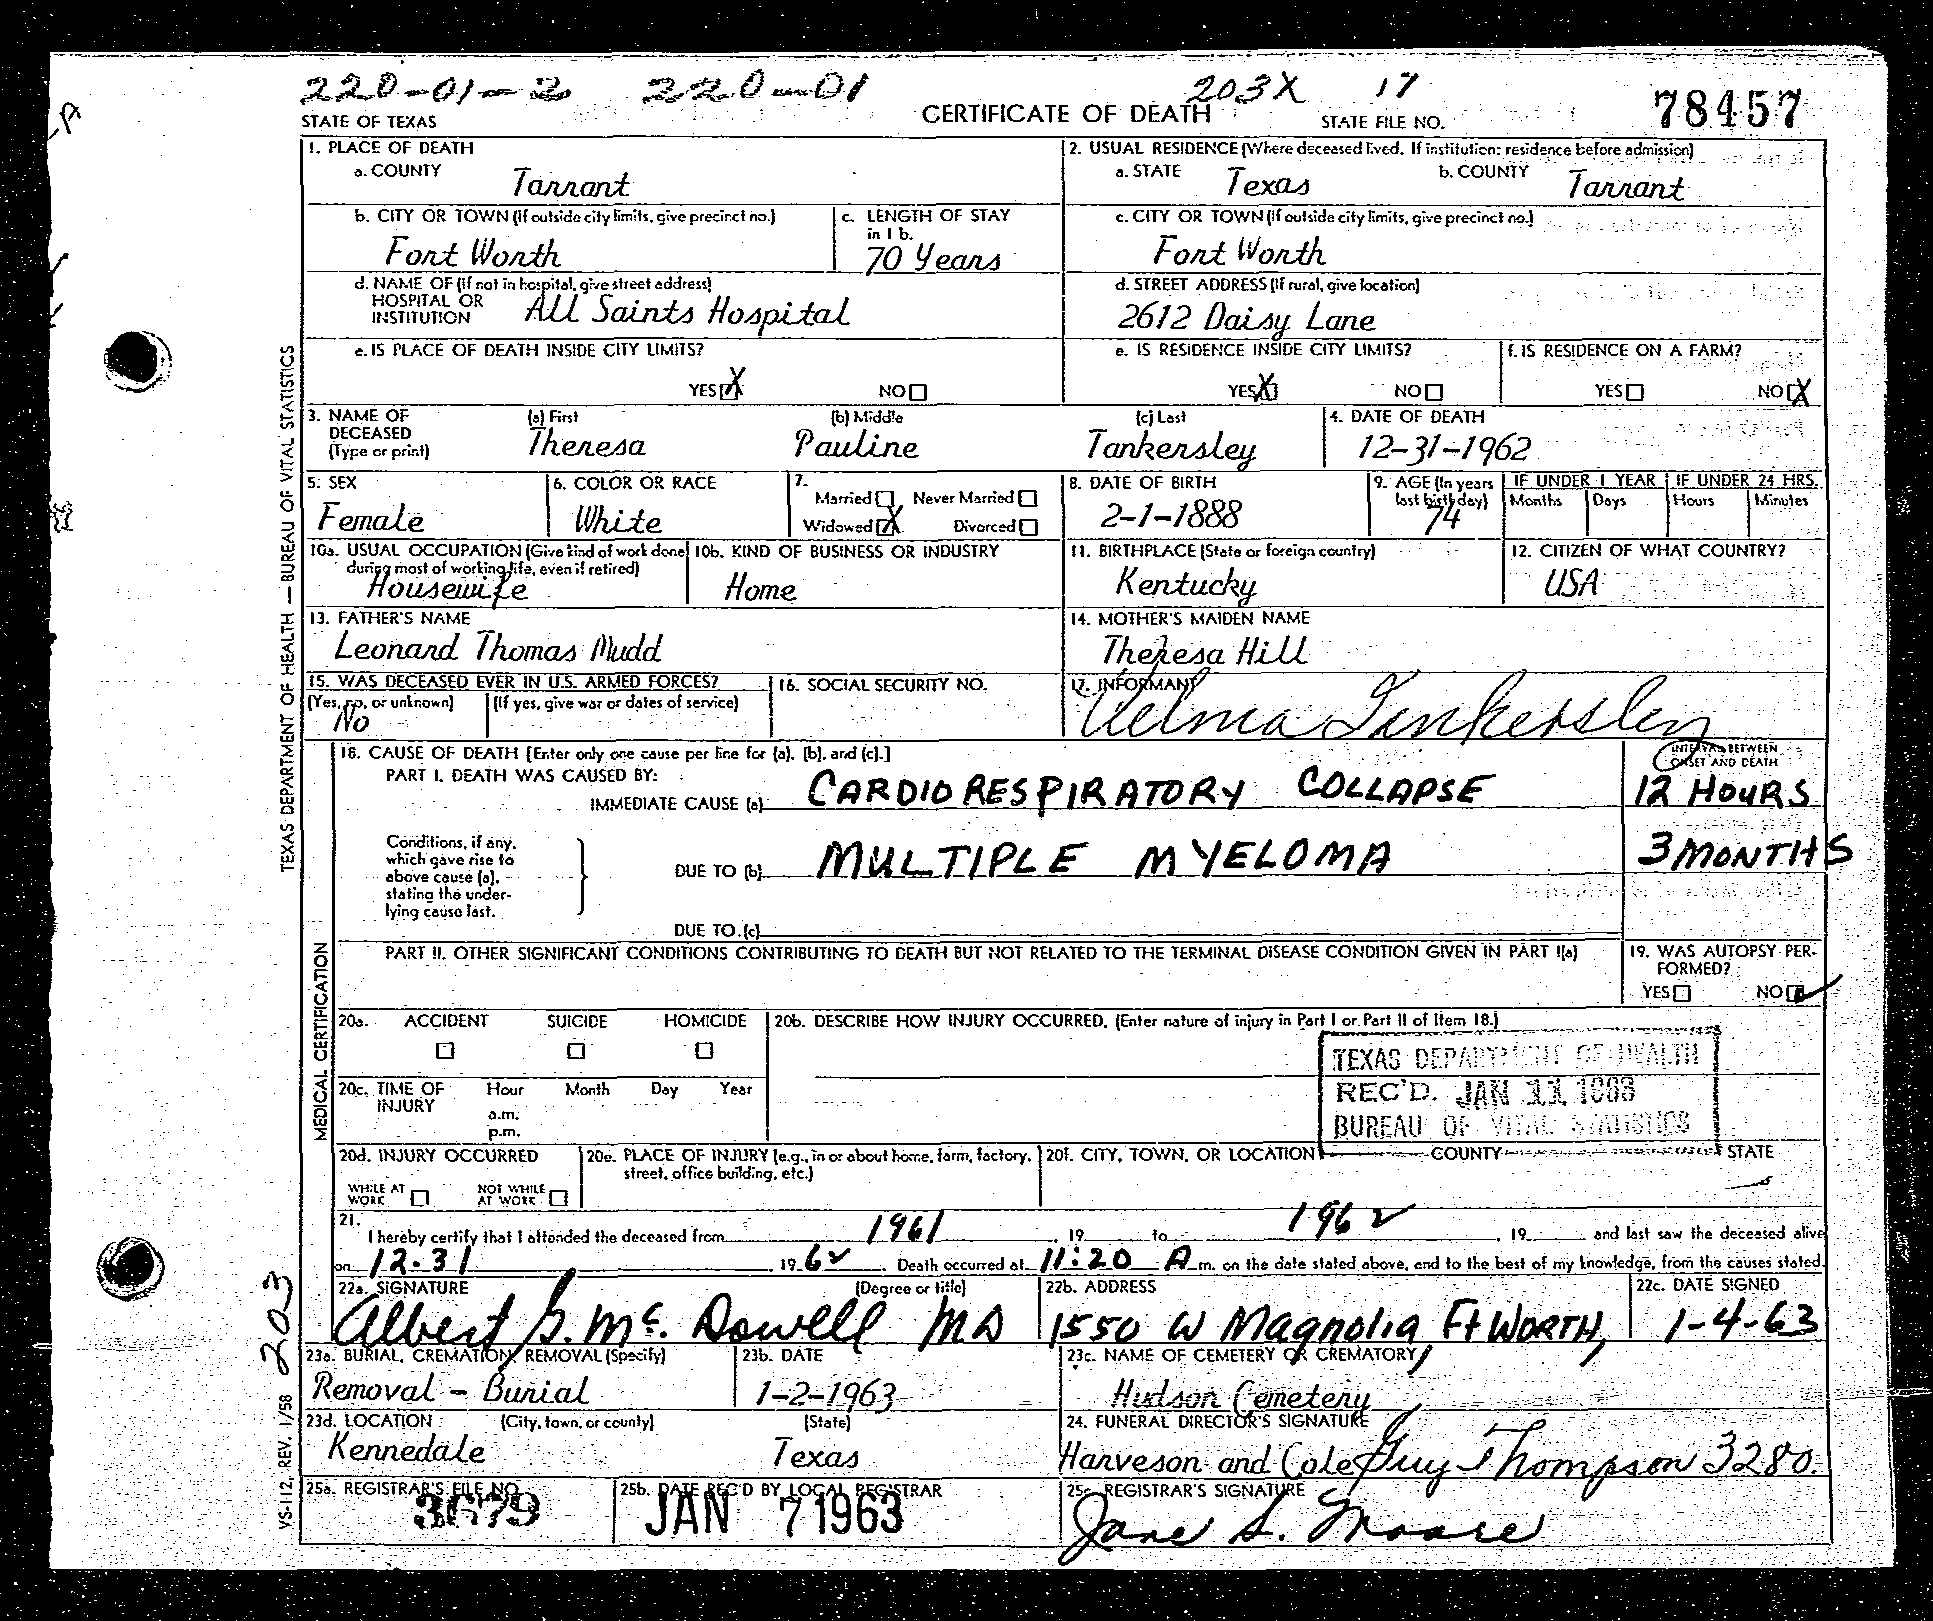 220-01-2 220-01 203X 17
STATE OF TEXAS CERTIFICATE OF DEATH STATE FILE NO. 78457
1. PLACE OF DEATH 2. USUAL RESIDENCE (Where deceased lived. If institution: residence before admission)
a. COUNTY Tarrant a. STATE Texas b. COUNTY Tarrant
b. CITY OR TOWN (If outside city limits, give precinct no.) c. LENGTH OF STAY in 1 b. c. CITY OR TOWN (If outside city limits, give precinct no.)
Fort Worth 70 Years Fort Worth
d. NAME OF (If not in hospital, give street address) d. STREET ADDRESS (If rural, give location)
HOSPITAL OR INSTITUTION All Saints Hospital 2612 Daisy Lane
e. IS PLACE OF DEATH INSIDE CITY LIMITS? e. IS RESIDENCE INSIDE CITY LIMITS? f. IS RESIDENCE ON A FARM?
YES X NO YES X NO YES NO X
3. NAME OF DECEASED (Type or print) (a) First (b) Middle (c) Last 4. DATE OF DEATH
Theresa Pauline Tankersley 12-31-1962
5. SEX 6. COLOR OR RACE 7. Married Never Married 8. DATE OF BIRTH 9. AGE (In years last birthday) IF UNDER 1 YEAR IF UNDER 24 HRS.
Months Days Hours Minutes
Female White Widowed X Divorced 2-1-1888 74
10a. USUAL OCCUPATION (Give kind of work done during most of working life, even if retired) 10b. KIND OF BUSINESS OR INDUSTRY 11. BIRTHPLACE (State or foreign country) 12. CITIZEN OF WHAT COUNTRY?
Housewife Home Kentucky USA
13. FATHER'S NAME 14. MOTHER'S MAIDEN NAME
Leonard Thomas Mudd Theresa Hill
15. WAS DECEASED EVER IN U.S. ARMED FORCES? 16. SOCIAL SECURITY NO. 17. INFORMANT
(Yes, no, or unknown) (If yes, give war or dates of service)
No Velma Tankersley
18. CAUSE OF DEATH [Enter only one cause per line for (a), (b), and (c).] INTERVAL BETWEEN ONSET AND DEATH
PART I. DEATH WAS CAUSED BY:
IMMEDIATE CAUSE (a) CARDIORESPIRATORY COLLAPSE 12 HOURS
Conditions, if any, which gave rise to above cause (a), stating the underlying cause last.
DUE TO (b) MULTIPLE MYELOMA 3 MONTHS
DUE TO (c)
PART II. OTHER SIGNIFICANT CONDITIONS CONTRIBUTING TO DEATH BUT NOT RELATED TO THE TERMINAL DISEASE CONDITION GIVEN IN PART I(a) 19. WAS AUTOPSY PERFORMED?
YES NO
20a. ACCIDENT SUICIDE HOMICIDE 20b. DESCRIBE HOW INJURY OCCURRED. (Enter nature of injury in Part I or Part II of Item 18.)
TEXAS DEPARTMENT OF HEALTH
REC'D. JAN 11 1963
BUREAU OF VITAL STATISTICS
20c. TIME OF INJURY Hour Month Day Year
a.m.
p.m.
20d. INJURY OCCURRED 20e. PLACE OF INJURY (e.g., in or about home, farm, factory, street, office building, etc.) 20f. CITY, TOWN, OR LOCATION COUNTY STATE
WHILE AT WORK NOT WHILE AT WORK
21. I hereby certify that I attended the deceased from 1961, 19 to 1962, 19 and last saw the deceased alive
on 12-31 1962. Death occurred at 11:20 A m. on the date stated above, and to the best of my knowledge, from the causes stated.
22a. SIGNATURE (Degree or title) 22b. ADDRESS 22c. DATE SIGNED
Albert G. McDowell MD 1550 W Magnolia Ft WORTH, 1-4-63
23a. BURIAL, CREMATION, REMOVAL (Specify) 23b. DATE 23c. NAME OF CEMETERY OR CREMATORY
Removal - Burial 1-2-1963 Hudson Cemetery
23d. LOCATION (City, town, or county) (State) 24. FUNERAL DIRECTOR'S SIGNATURE
Kennedale Texas Harveson and Cole Guy Thompson 3280
25a. REGISTRAR'S FILE NO. 25b. DATE REC'D BY LOCAL REGISTRAR 25c. REGISTRAR'S SIGNATURE
JAN 7 1963 Jane S. Moore
TEXAS DEPARTMENT OF HEALTH — BUREAU OF VITAL STATISTICS
MEDICAL CERTIFICATION
VS-112, REV. 1/58 203